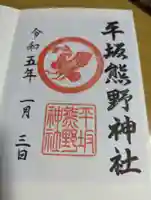 平坂熊野神社
平坂
熊野
神社
令和五年
一月
三日